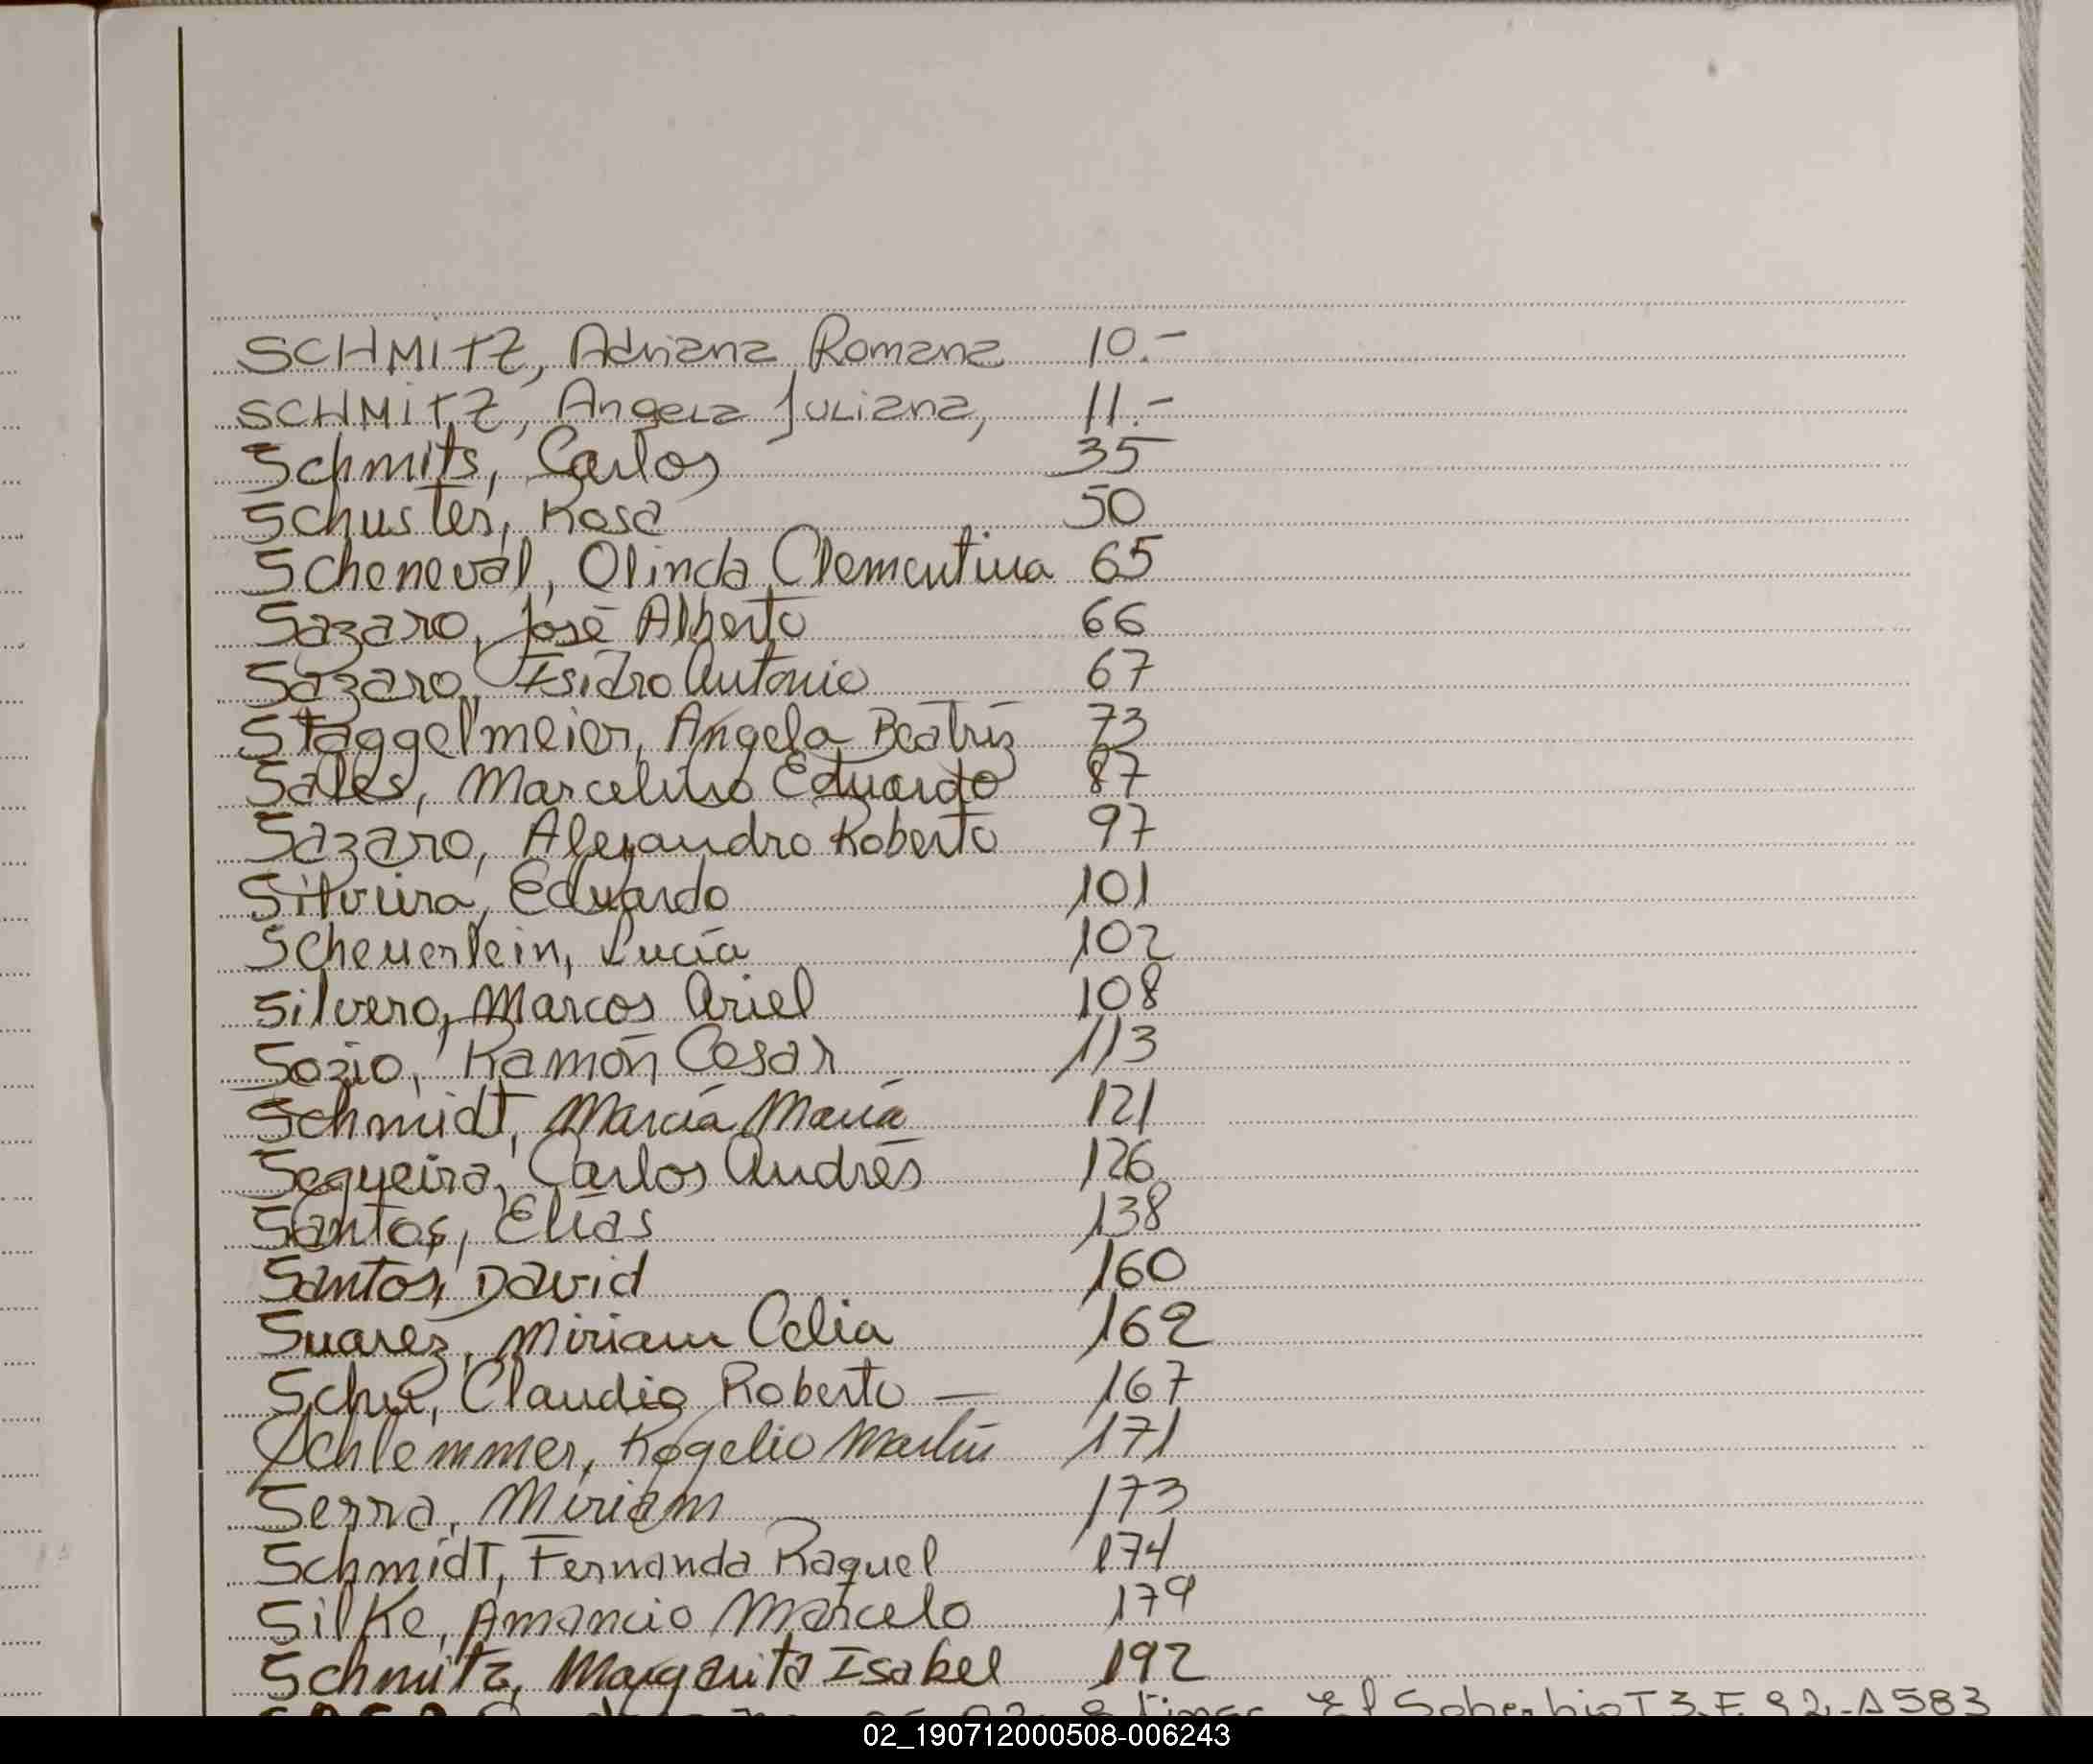 SCHMITZ, Adriana Romana 10.-
SCHMITZ, Angela Juliana, 11.-
Schmits, Carlos 35
Schuster, Rosa 50
Scheneval, Olinda Clementina 65
Sazaro, José Alberto 66
Sazaro, Isidro Antonio 67
Staggelmeier, Angela Beatriz 73
Sales, Marcelino Eduardo 87
Sazaro, Alejandro Roberto 97
Silveira, Eduardo 101
Scheuerlein, Lucía 102
Silvero, Marcos Ariel 108
Sozio, Ramón Cesar 113
Schmidt, Marcia María 121
Sequeira, Carlos Andrés 126
Santos, Elías 138
Santos, David 160
Suarez, Miriam Celia 162
Schu, Claudio Roberto — 167
Schlemmer, Rogelio Martín 171
Serra, Miriam 173
Schmidt, Fernanda Raquel 174
Silke, Amancio Marcelo 179
Schmitz, Margarita Isabel 192
El Soberbio T3-F 92-A583
02_190712000508-006243